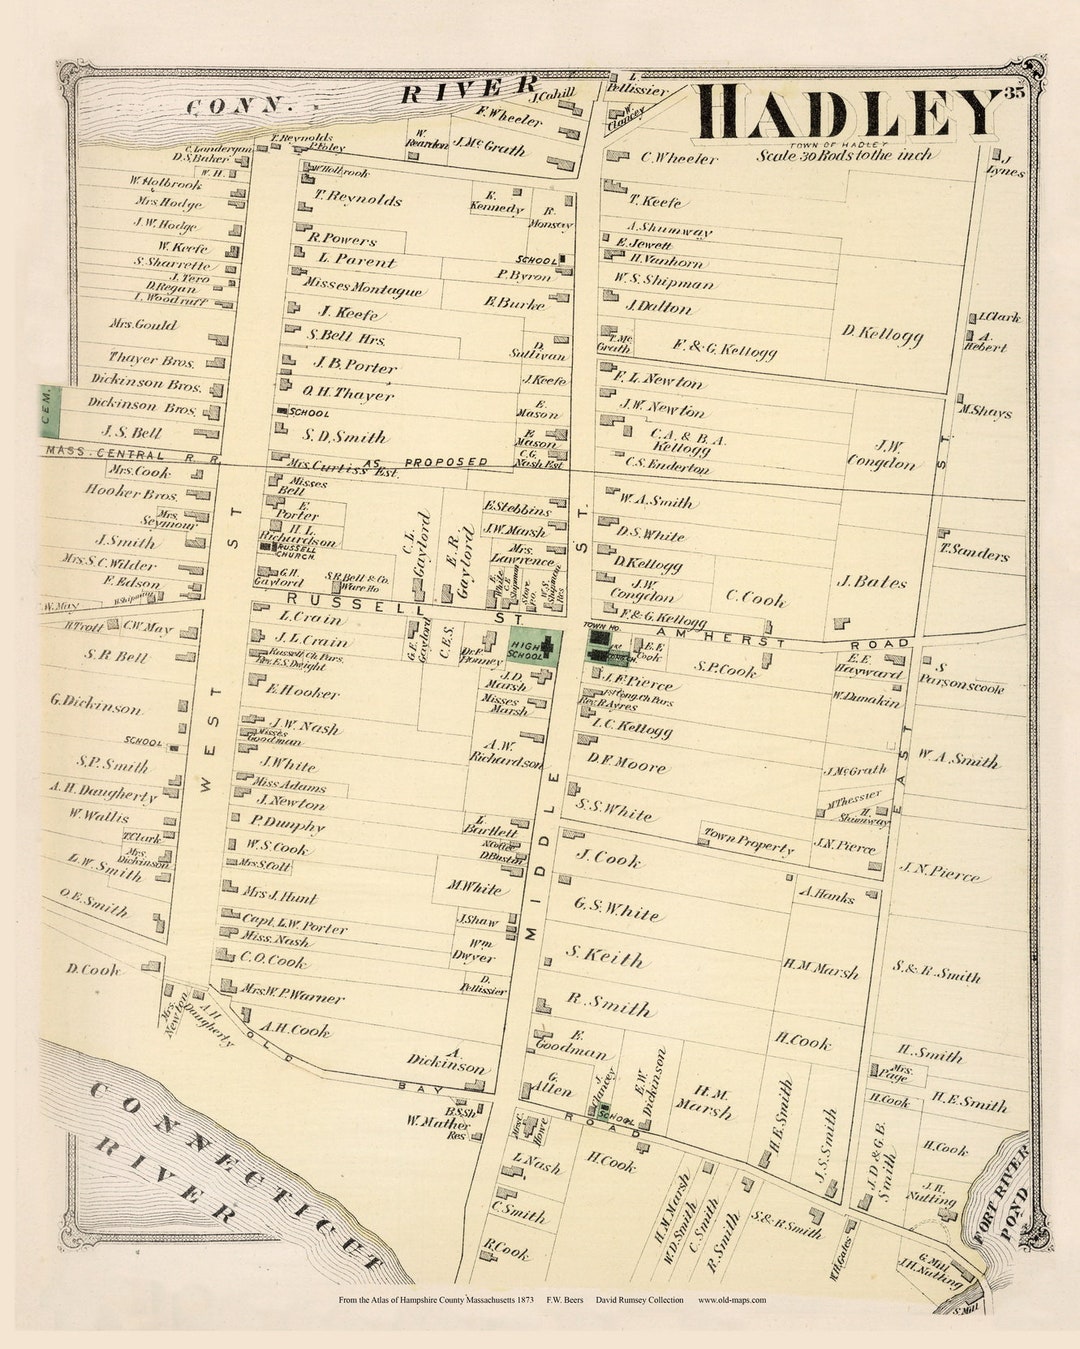 HADLEY
35
TOWN OF HADLEY
Scale 30 Rods to the inch
CONN. RIVER
J. Cahill
F. Wheeler
W. Reardon
J. McGrath
L. Pellissier
W. Clancey
C. Wheeler
J. Lynes
T. Reynolds
P. Foley
C. Londergan
D.S. Baker
W. H.
W. Holbrook
Mrs. Hodge
J. W. Hodge
W. Keefe
S. Sharrette
J. Tero
D. Regan
L. Woodruff
Mrs. Gould
Thayer Bros.
Dickinson Bros.
Dickinson Bros.
J. S. Bell
CEM.
MASS. CENTRAL R. R.
AS PROPOSED
Mrs. Cook
Hooker Bros.
Mrs. Seymour
J. Smith
Mrs. S. C. Wilder
E. Edson
W. May
H. Trott
C.W. May
S. R Bell
G. Dickinson
SCHOOL
S.P. Smith
A. H. Daugherty
W. Wallis
T. Clark
Mrs. Dickinson
L. W. Smith
O. E. Smith
D. Cook
Mrs. Newton
A. H. Daugherty
WEST ST
W. Holbrook
T. Reynolds
R. Powers
L. Parent
Misses Montague
J. Keefe
S. Bell Hrs.
J. B. Porter
O. H. Thayer
SCHOOL
S. D. Smith
Mrs. Curtiss Est.
Misses Bell
E. Porter
H. L. Richardson
RUSSELL CHURCH
G.H. Gaylord
S.R. Bell & Co.
Ware Ho
C. L. Gaylord
E. R. Gaylord
E. Kennedy
R. Monsey
SCHOOL
P. Byron
E. Burke
D. Sullivan
J. Keefe
E. Mason
E. Mason
C.G. Nash Est
E. Stebbins
J. W. Marsh
Mrs. Lawrence
E. White
Store
W. S. Shipman
Res
RUSSELL ST.
L. Crain
J. L. Crain
Russell Ch. Pars.
Rev. E.S. Dwight
E. Hooker
J. W. Nash
Misses Goodman
J. White
Miss Adams
J. Newton
P. Dunphy
W. S. Cook
Mrs. S. Colt
Mrs J. Hunt
Capt. L.W. Porter
Miss. Nash
C. O. Cook
Mrs. W. P. Warner
A. H. Cook
G.E. Gaylord
C.E.S.
Dr. F. Bonney
HIGH SCHOOL
J. D. Marsh
Misses Marsh
A. W. Richardson
L. Bartlett
M. White
J. Shaw
Wm Dwyer
D. Pellissier
A. Dickinson
MIDDLE ST.
T. Keefe
A. Shumway
E. Jewett
H. Vanhorn
W. S. Shipman
J. Dalton
T. McGrath
F. & G. Kellogg
D. Kellogg
F. L. Newton
J. W. Newton
C. A. & B. A. Kellogg
C. S. Enderton
J.W. Congdon
W. A. Smith
D. S. White
D. Kellogg
J. W. Congdon
C. Cook
J. Bates
F. & G. Kellogg
I. Clark
A. Hebert
M. Shays
T. Sanders
AMHERST ROAD
TOWN HO.
E. E. Cook
S. P. Cook
E. E. Hayward
W. Dunakin
S Parsonscook
J. F. Pierce
1st Cong. ch Pars
Rev. R. Ayres
L. C. Kellogg
D. F. Moore
S. S. White
J. McGrath
M Thessier
H. Shumway
W. A. Smith
Town Property
J. N. Pierce
J. N. Pierce
J. Cook
G. S. White
A. Hanks
S. Keith
H. M. Marsh
S. & R. Smith
R. Smith
H. Cook
E. Goodman
H. Smith
EAST ST.
G. Allen
J. Clancey
E.W. Dickinson
H. M. Marsh
H. E. Smith
J. S. Smith
Mrs. Page
H. Cook
H. E. Smith
J. D & G. B. Smith
H. Cook
J. R. Nutting
OLD BAY ROAD
SCHOOL
B.S. Sh
W. Mather
Res
L. Nash
H. Cook
C. Smith
R. Cook
H. M. Marsh
W. D. Smith
C. Smith
R. Smith
S. & R. Smith
W. H. Gates
G. Mill
J. H. Nutting
S. Mill
FORT RIVER POND
CONNECTICUT RIVER
From the Atlas of Hampshire County Massachusetts 1873 F.W. Beers David Rumsey Collection www.old-maps.com